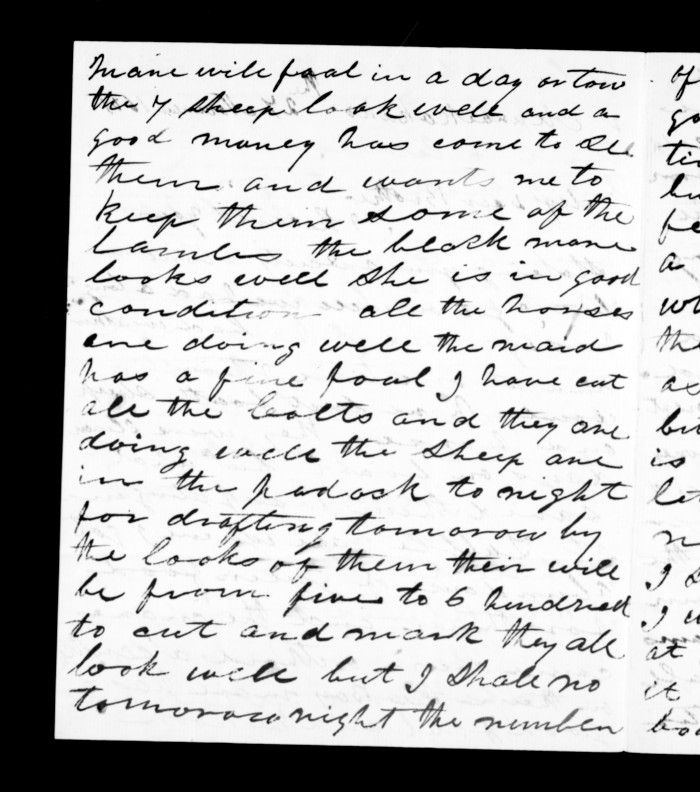 mare will foal in a day or tow
the 7 sheep look well and a
good maney has come to see
them and wants me to
keep them some of the
lambs the black mare
looks well she is in good
condition all the horses
are doing well the maid
has a fine foal I have cut
all the coalts and they are
doing well the sheep are
in the padock to night
for drafting tomorow by
the looks of them their will
be from five to 6 hundred
to cut and mark they all
look well but I shall no
tomorow night the number
go
a
wh
the
as
is
let
I
at
it